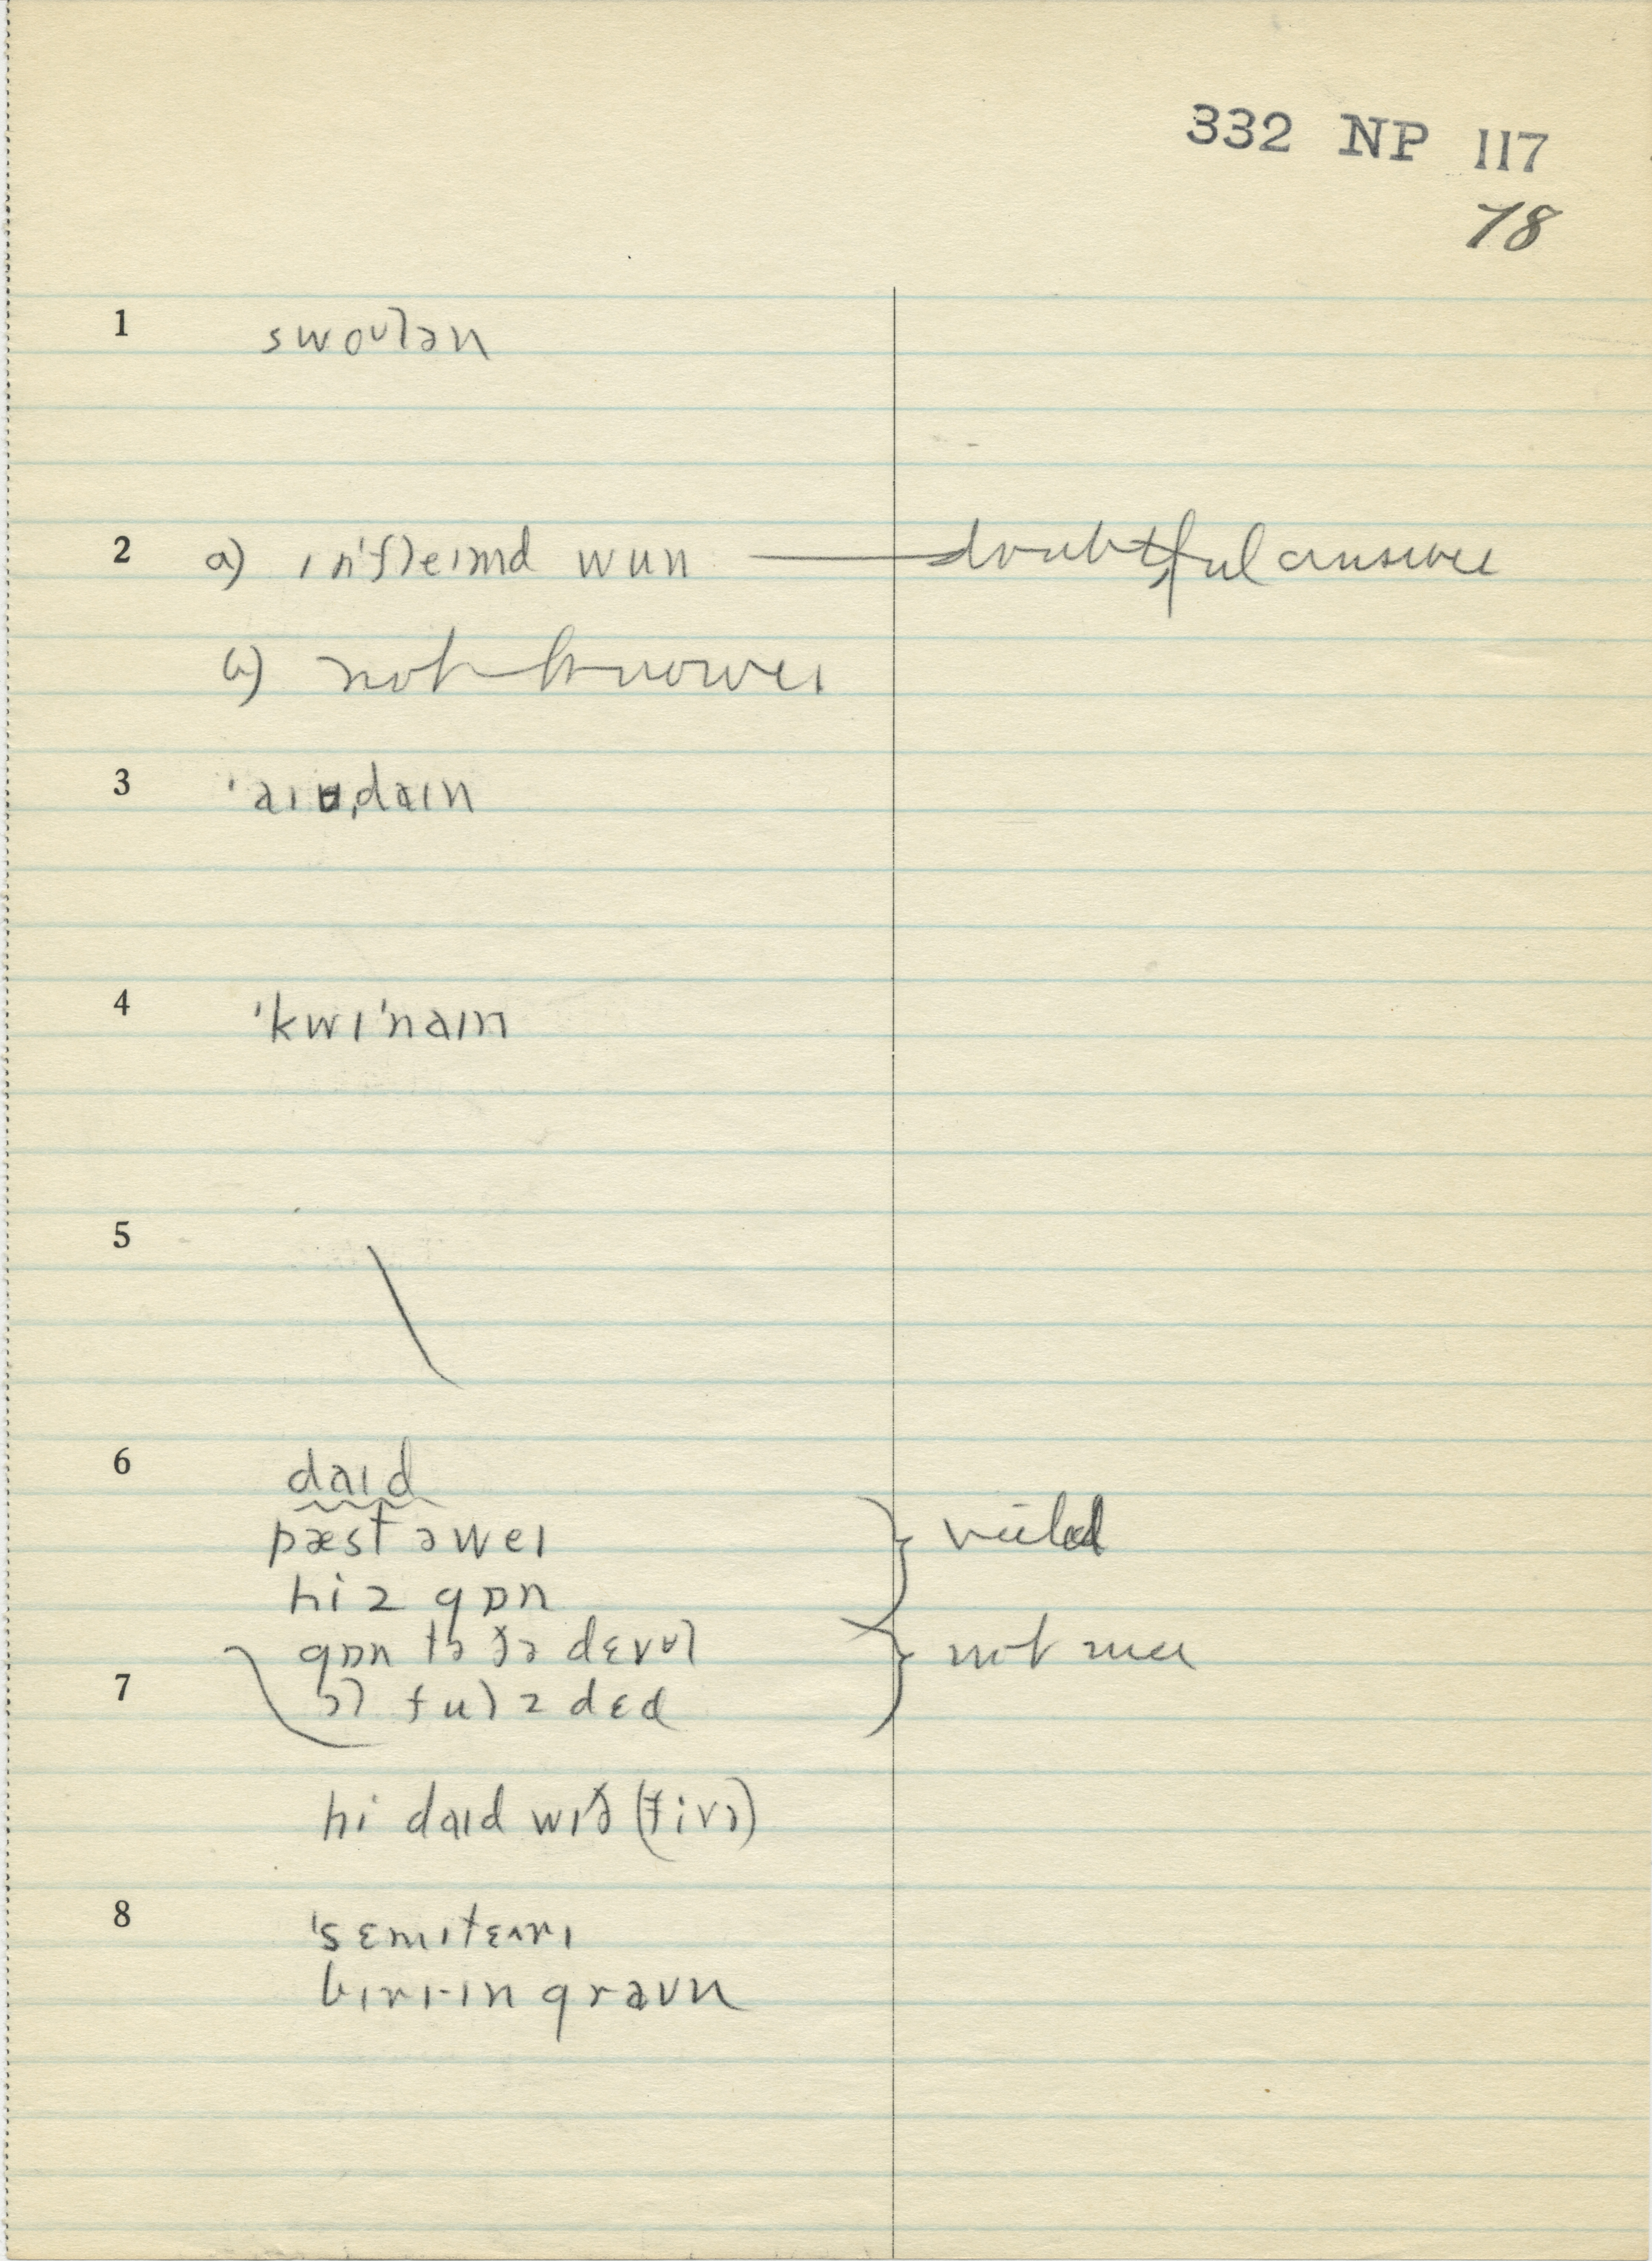 332 NP 117
78
1 swoʊlən
2 a) ɪn'fleɪmd wun — doubtful answer
b) not known
3 'aɪəˌdaɪn
4 'kwɪ'naɪn
5
6 daɪd
pæst əweɪ
hiz gɒn
gɒn tə ðə dɛvʊl not
7 ɔl fulz dɛd
hi daɪd wɪð (fivə)
8 'sɛmɪtɛʌrɪ
bɪrɪ-ɪn graʊn